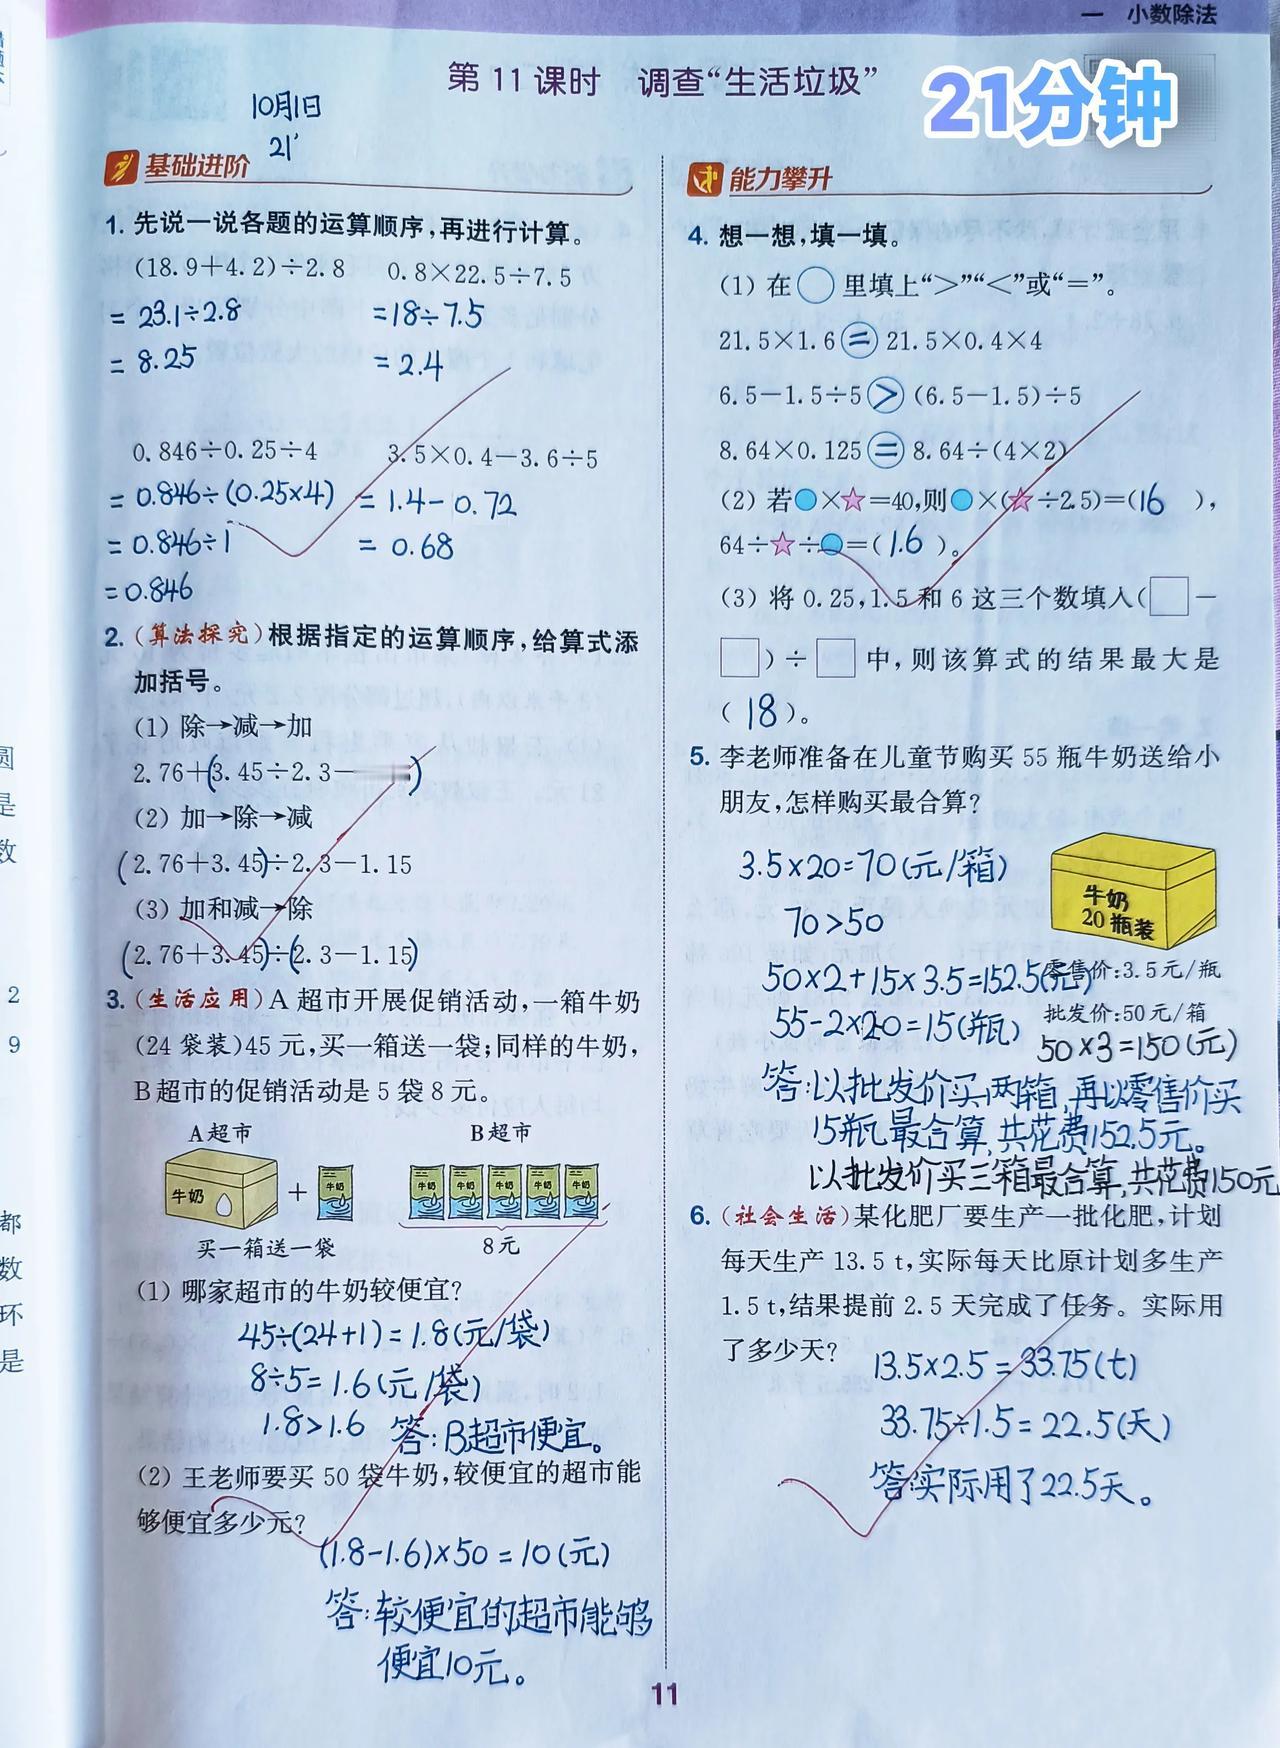 一 小数除法
第 11 课时 调查“生活垃圾”
21分钟
10月1日
21'
基础进阶
1. 先说一说各题的运算顺序,再进行计算。
(18.9+4.2)÷2.8 0.8×22.5÷7.5
= 23.1÷2.8 =18÷7.5
= 8.25 =2.4
0.846÷0.25÷4 3.5×0.4-3.6÷5
= 0.846÷(0.25×4) = 1.4-0.72
= 0.846÷1 = 0.68
=0.846
2. (算法探究)根据指定的运算顺序,给算式添
加括号。
(1) 除→减→加
2.76+(3.45÷2.3- )
(2) 加→除→减
(2.76+3.45)÷2.3-1.15
(3) 加和减→除
(2.76+3.45)÷(2.3-1.15)
3. (生活应用)A 超市开展促销活动,一箱牛奶
(24 袋装)45 元,买一箱送一袋;同样的牛奶,
B超市的促销活动是 5 袋 8 元。
A超市 B超市
牛奶 + 牛奶 牛奶 牛奶 牛奶 牛奶 牛奶
买一箱送一袋 8元
(1) 哪家超市的牛奶较便宜?
45÷(24+1)=1.8(元/袋)
8÷5=1.6(元/袋)
1.8>1.6 答:B超市便宜。
(2) 王老师要买 50 袋牛奶,较便宜的超市能
够便宜多少元?
(1.8-1.6)×50=10(元)
答:较便宜的超市能够
便宜10元。
能力攀升
4. 想一想,填一填。
(1) 在○里填上“>”“<”或“=”。
21.5×1.6=21.5×0.4×4
6.5-1.5÷5>(6.5-1.5)÷5
8.64×0.125=8.64÷(4×2)
(2) 若●×★=40,则●×(★÷2.5)=(16 ),
64÷★÷●=(1.6 )。
(3) 将 0.25,1.5 和 6 这三个数填入(□-
□)÷□中,则该算式的结果最大是
(18)。
5. 李老师准备在儿童节购买 55 瓶牛奶送给小
朋友,怎样购买最合算?
3.5×20=70(元/箱)
70>50
牛奶
20瓶装
50×2+15×3.5=152.5(元)
零售价:3.5元/瓶
55-2×20=15(瓶)
批发价:50元/箱
50×3=150(元)
答:以批发价买两箱,再以零售价买
15瓶最合算,共花费152.5元。
以批发价买三箱最合算,共花费150元
6. (社会生活)某化肥厂要生产一批化肥,计划
每天生产 13.5 t,实际每天比原计划多生产
1.5 t,结果提前 2.5 天完成了任务。实际用
了多少天?
13.5×2.5=33.75(t)
33.75÷1.5=22.5(天)
答:实际用了22.5天。
11
圆
是
数
2
9
都
数
环
是